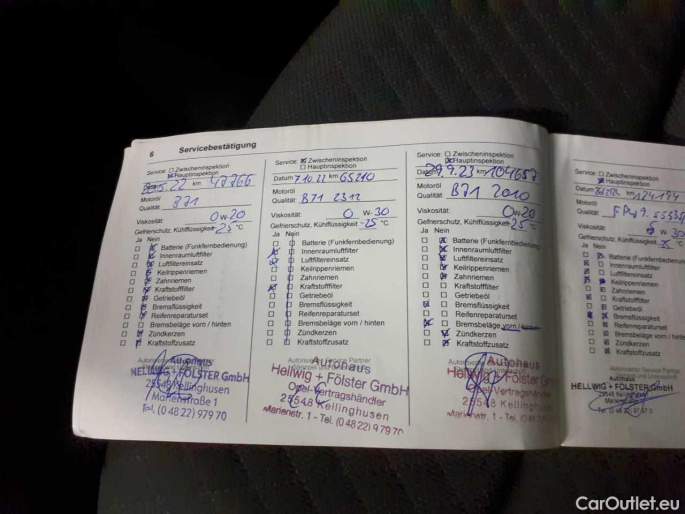 6 Servicebestätigung
Service: Zwischeninspektion
Hauptinspektion
22 km 48766
Motoröl
Qualität B71
Viskosität: 0 W- 20
Gefrierschutz, Kühlflüssigkeit -25 °C
Ja Nein
Batterie (Funkfernbedienung)
Innenraumluftfilter
Luftfiltereinsatz
Keilrippenriemen
Zahnriemen
Kraftstofffilter
Getriebeöl
Bremsflüssigkeit
Reifenreparaturset
Bremsbeläge vorn / hinten
Zündkerzen
Kraftstoffzusatz
Autohaus
HELLWIG + FÖLSTER GmbH
25548 Kellinghusen
Marienstraße 1
Tel. (0 48 22) 979 70
Service: Zwischeninspektion
Hauptinspektion
Datum 7.10.22 km 65210
Motoröl
Qualität B71 2312
Viskosität: 0 W- 30
Gefrierschutz, Kühlflüssigkeit -25 °C
Ja Nein
Batterie (Funkfernbedienung)
Innenraumluftfilter
Luftfiltereinsatz
Keilrippenriemen
Zahnriemen
Kraftstofffilter
Getriebeöl
Bremsflüssigkeit
Reifenreparaturset
Bremsbeläge vorn / hinten
Zündkerzen
Kraftstoffzusatz
Autohaus
Hellwig + Fölster GmbH
Opel-Vertragshändler
25548 Kellinghusen
Marienstr. 1 - Tel. (0 48 22) 979 70
Service: Zwischeninspektion
Hauptinspektion
9.23 km 104657
Motoröl
Qualität B71 2010
Viskosität: 0 W- 20
Gefrierschutz, Kühlflüssigkeit -25 °C
Ja Nein
Batterie (Funkfernbedienung)
Innenraumluftfilter
Luftfiltereinsatz
Keilrippenriemen
Zahnriemen
Kraftstofffilter
Getriebeöl
Bremsflüssigkeit
Reifenreparaturset
Bremsbeläge vorn / hinten
Zündkerzen
Kraftstoffzusatz
Autohaus
Hellwig + Fölster GmbH
Opel-Vertragshändler
25548 Kellinghusen
Marienstr. 1 - Tel. (0 48 22) 979 70
Service: Zwischeninspektion
Hauptinspektion
km
Motoröl
Qualität
Viskosität: 0 W- 30
Gefrierschutz, Kühlflüssigkeit
Ja Nein
Batterie (Funkfernbedienung)
Innenraumluftfilter
Luftfiltereinsatz
Keilrippenriemen
Zahnriemen
Kraftstofffilter
Getriebeöl
Bremsflüssigkeit
Reifenreparaturset
Bremsbeläge vorn / hinten
Zündkerzen
Kraftstoffzusatz
Autohaus
HELLWIG + FÖLSTER GmbH
25548 Kellinghusen
CarOutlet.eu